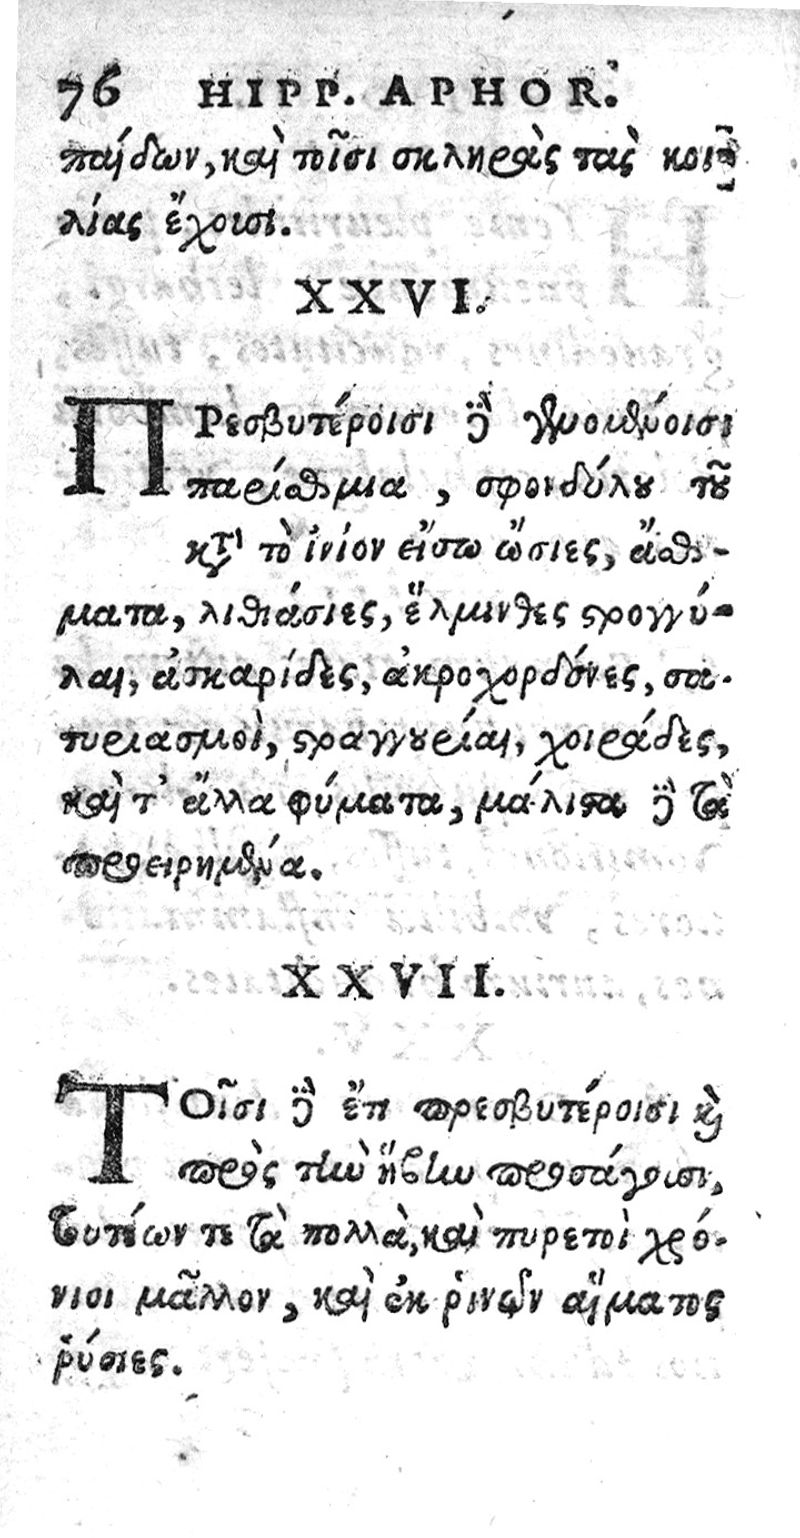 76 HIPP. APHOR.
παίδων, καὶ τοῖσι σκληρὰς τὰς κοι-
λίας ἔχοισι.
XXVI.
ΠΡεσβυτέροισι δὲ γενομένοισι
παρίσθμια, σφονδύλου τοῦ
κατὰ τὸ ἰνίον εἴσω ὤσιες, ἄσθ-
ματα, λιθιάσιες, ἕλμινθες στρογγύ-
λαι, ἀσκαρίδες, ἀκροχορδόνες, σα-
τυριασμοὶ, στραγγουρίαι, χοιράδες,
καὶ τ' ἄλλα φύματα, μάλιστα δὲ τὰ
προειρημένα.
XXVII.
ΤΟῖσι δὲ ἔτι πρεσβυτέροισι καὶ
πρὸς τὴν ἥβην προσάγουσι,
τουτέων τε τὰ πολλὰ, καὶ πυρετοὶ χρό-
νιοι μᾶλλον, καὶ ἐκ ῥινῶν αἵματος
ῥύσιες.